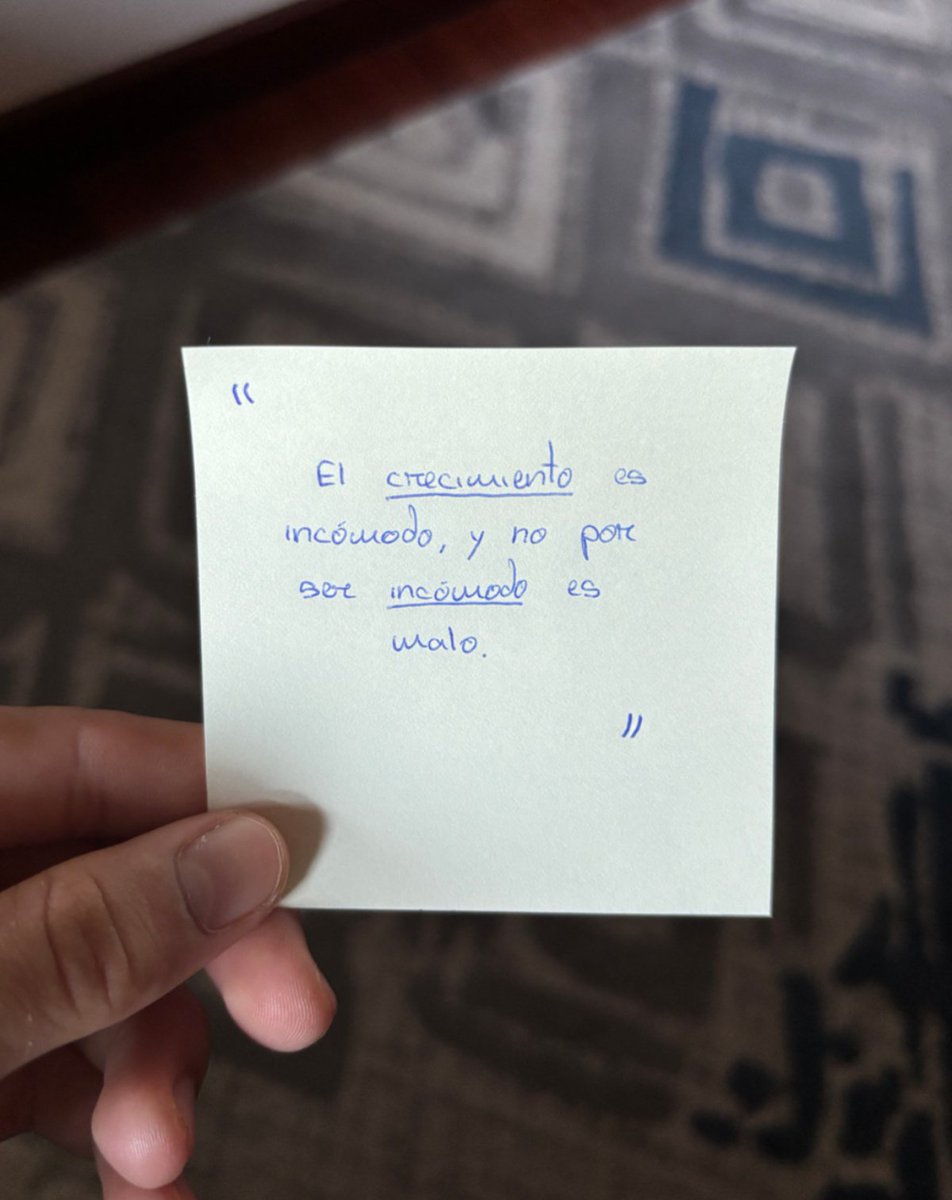 "
El crecimiento es
incómodo, y no por
ser incómodo es
malo.
"